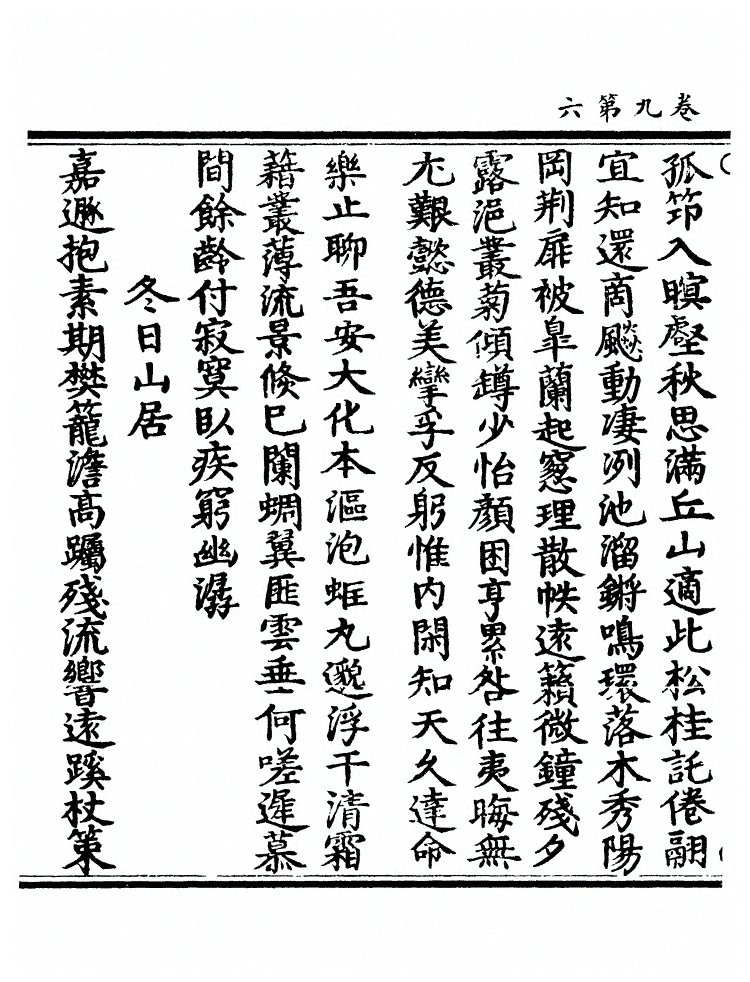 卷九第六
孤笻入暝壑秋思滿丘山適此松桂託倦翮
宜知還商飈動凄冽池溜鏘鳴環落木秀陽
岡荆扉被皐蘭起窓理散帙遠籟微鐘殘夕
露浥叢菊傾罇少怡顔困亨累咎往夷晦無
尤艱懿德美攣孚反躬惟内閑知天久達命
樂止聊吾安大化本漚泡蚷丸邈浮干清霜
藉叢薄流景倏已闌蜩翼匪雲垂何嗟遲慕
間餘齡付寂寞臥疾窮幽潺
冬日山居
嘉遯抱素期樊籠澹高躅殘流響遠蹊杖策